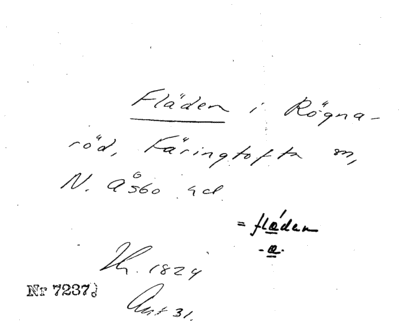 Fläden i Rögna-
röd, Färingtofta sn,
N. Åsbo hd.
= flǽden
-a-
1824
Nr 7237
31.